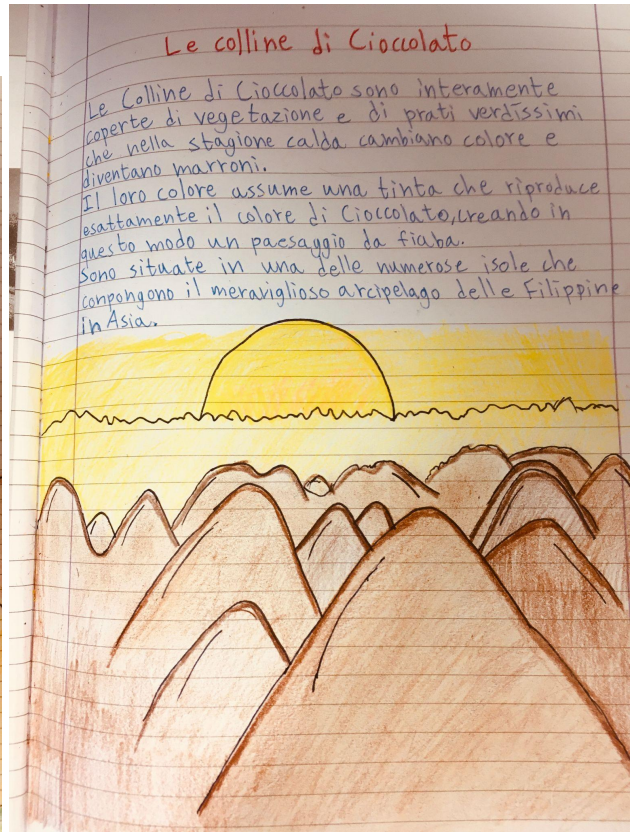 Le colline di Cioccolato
Le Colline di Cioccolato sono interamente
coperte di vegetazione e di prati verdissimi
che nella stagione calda cambiano colore e
diventano marroni.
Il loro colore assume una tinta che riproduce
esattamente il colore di Cioccolato, creando in
questo modo un paesaggio da fiaba.
Sono situate in una delle numerose isole che
conpongono il meraviglioso arcipelago delle Filippine
in Asia.